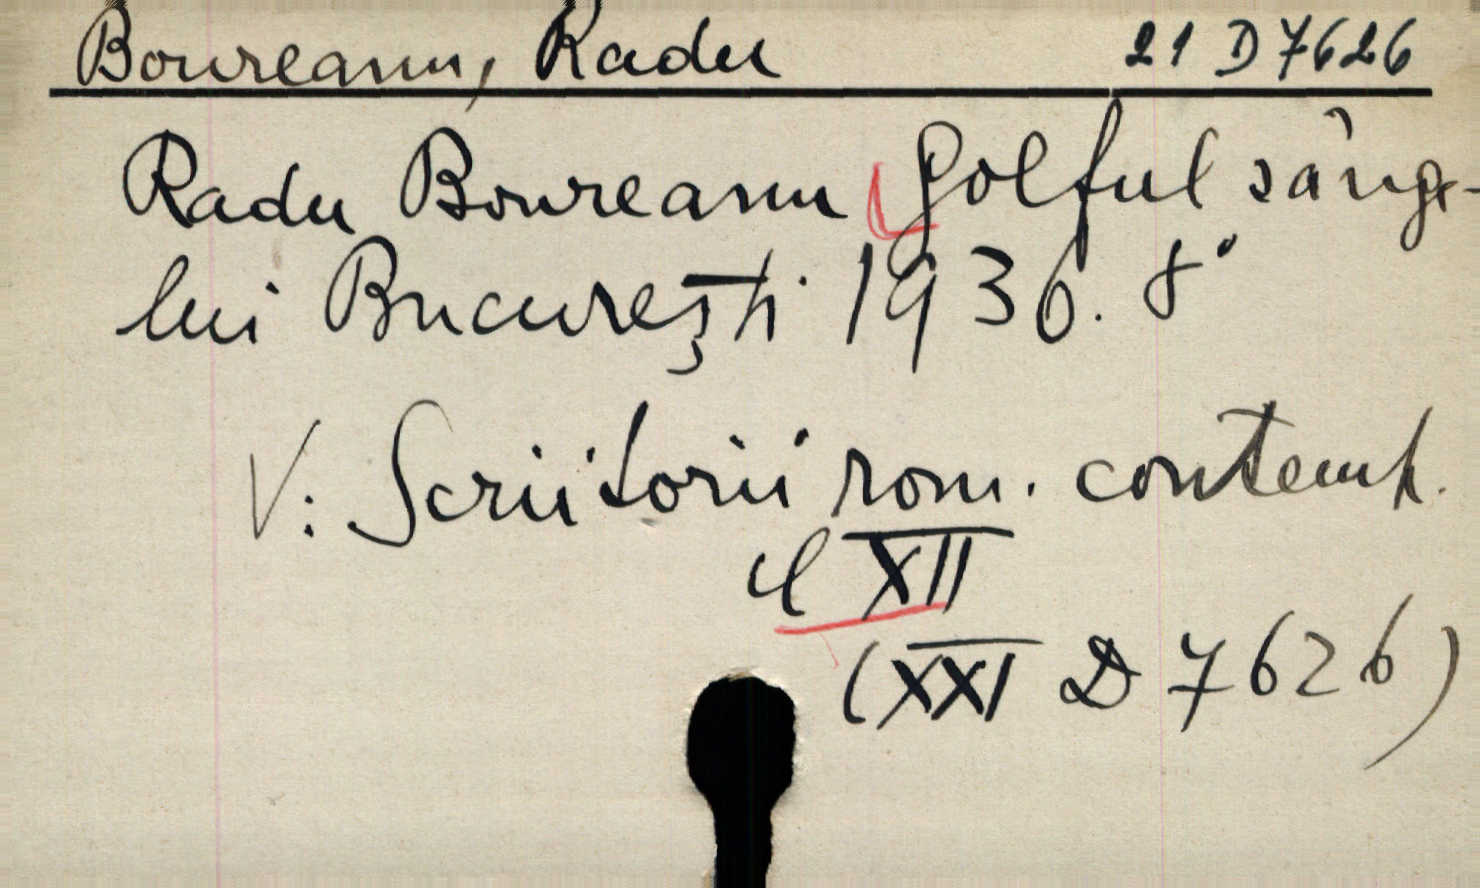 Boureanu, Radu 21 D 7626
Radu Boureanu Golful sânge-
lui București 1936. 8°
V: Scriitorii rom. contemp.
XII
(XXI D 7626)